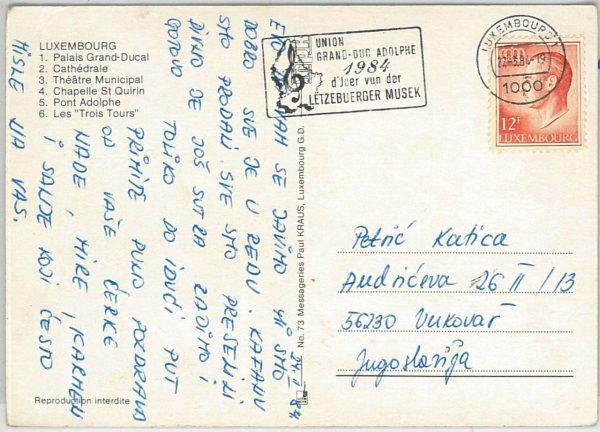 LUXEMBOURG
1. Palais Grand-Ducal
2. Cathédrale
3. Théâtre Municipal
4. Chapelle St Quirin
5. Pont Adolphe
6. Les "Trois Tours"
UNION
GRAND-DUC ADOLPHE
1984
d'Joer vun der
LËTZEBUERGER MUSEK
LUXEMBOURG 1
1000
12F
LUXEMBOURG
EVO DA VAM SE JAVIMO MI SMO
DOBRO SVE JE U REDU. KAFANU
SMO PRODALI SVE SMO PRESELILI
DIVNO JE JOŠ SUTRA RADIMO I
GOTOVO TOLIKO DO IDUĆI PUT
PRIMITE PUNO POZDRAVA
OD VAŠE ĆERKE
NADE, MIRE, I KARMEN
I SANDE KOJI ČESTO
MISLE NA VAS.
No. 73 Messageries Paul KRAUS, Luxembourg G.D.
Petrić Katica
Andrićeva 26 II/13
56230 Vukovar
Jugoslavija
Reproduction interdite